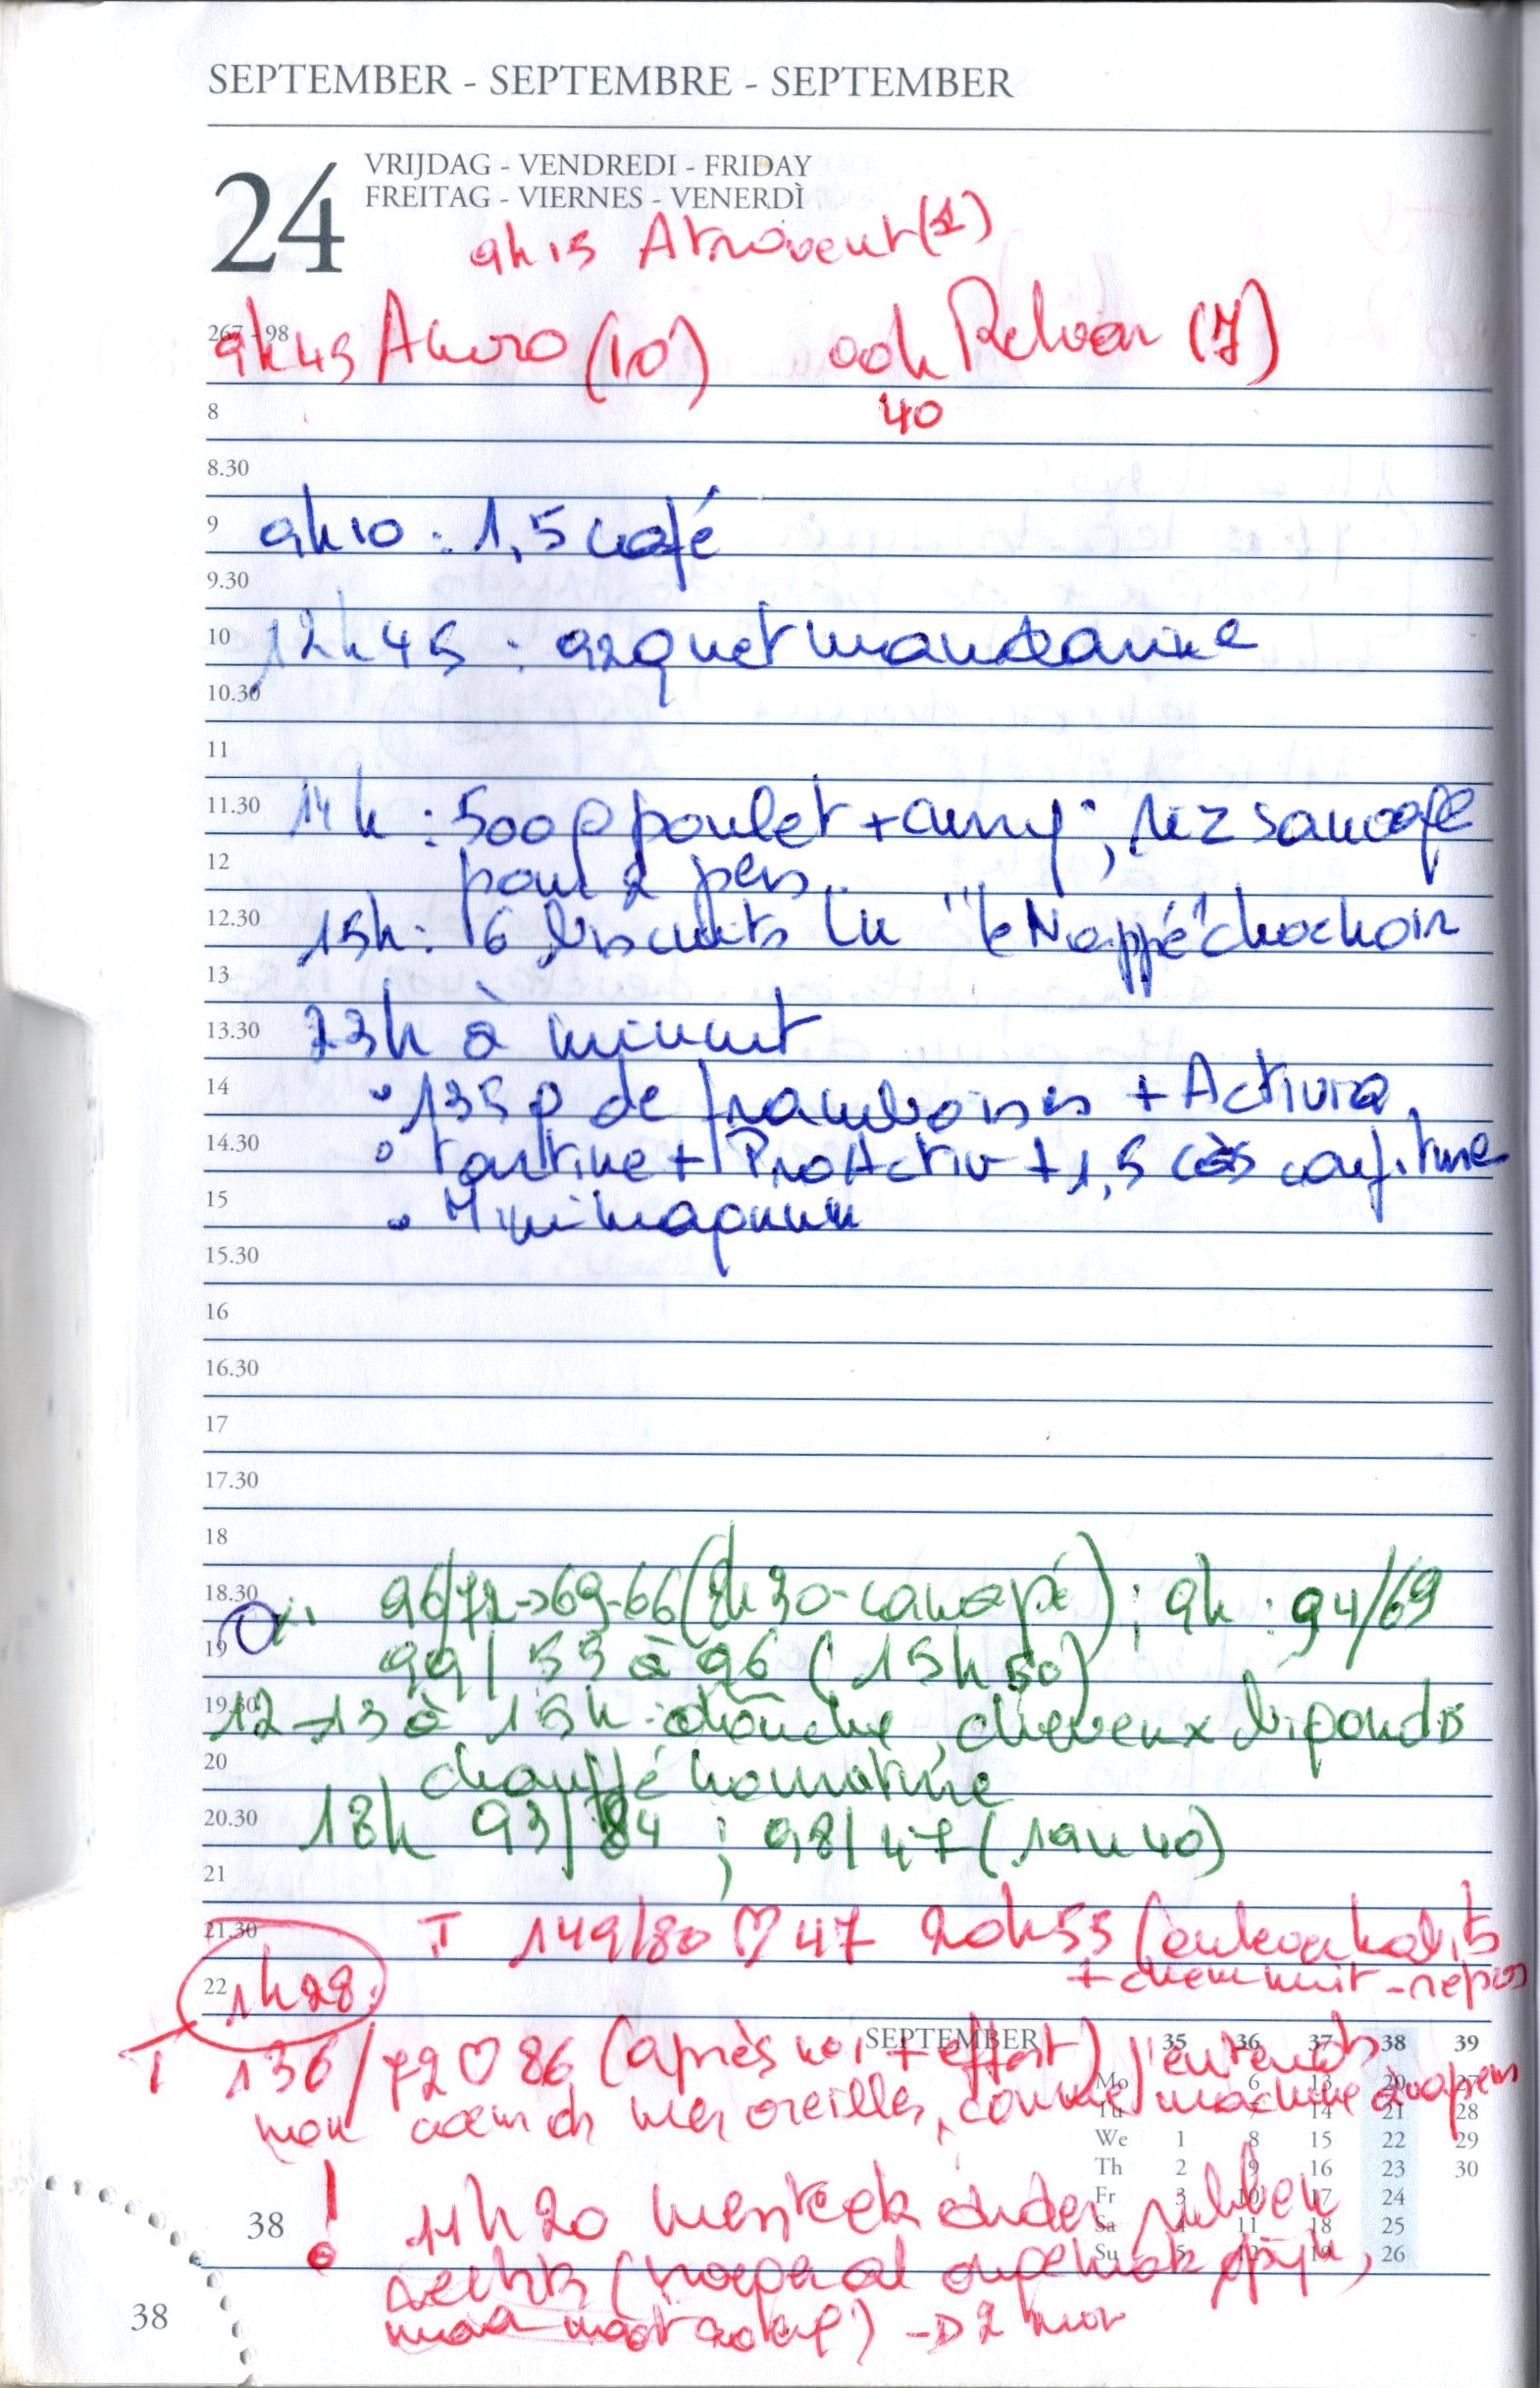 SEPTEMBER - SEPTEMBRE - SEPTEMBER
24
VRIJDAG - VENDREDI - FRIDAY
FREITAG - VIERNES - VENERDÌ
9h15 Atrovent (1)
267 - 98
9h45 (10) Relvar (7)
40
8
8.30
9 9h10 : 1,5 café
9.30
10 12h45 :
10.30
11
11.30 14h : 500g poulet + curry ;
12 pour 2 pers.
12.30 15h : 6 biscuits Lu "le Nappé"
13
13.30 23h à minuit
14 135g de framboises + Activia
14.30 tartine + ProActiv + 1,5 càs confiture
15 Mini magnum
15.30
16
16.30
17
17.30
18
18.30 96/72->69-66 (8h30-canapé) ; 9h : 94/69
19 99/55 à 96 (15h50)
19.30 12->13 à 15h : douche, cheveux bigoudis
20 chauffé
20.30 18h 93/84 ; 98/47 (19h40)
21
21.30 T 149/80 ♡ 47 20h55
22 1h28 + chem nuit - repos
T 136/72 ♡ 86 (après + effort) j'entends
mon cœur ds mes oreilles, comme machine à vapeur
SEPTEMBER 35 36 37 38 39
Mo 6 13 20 27
Tu 7 14 21 28
We 1 8 15 22 29
Th 2 9 16 23 30
Fr 3 10 17 24
Sa 4 11 18 25
Su 5 12 19 26
38
! 11h20 onder ribben
rechts
38